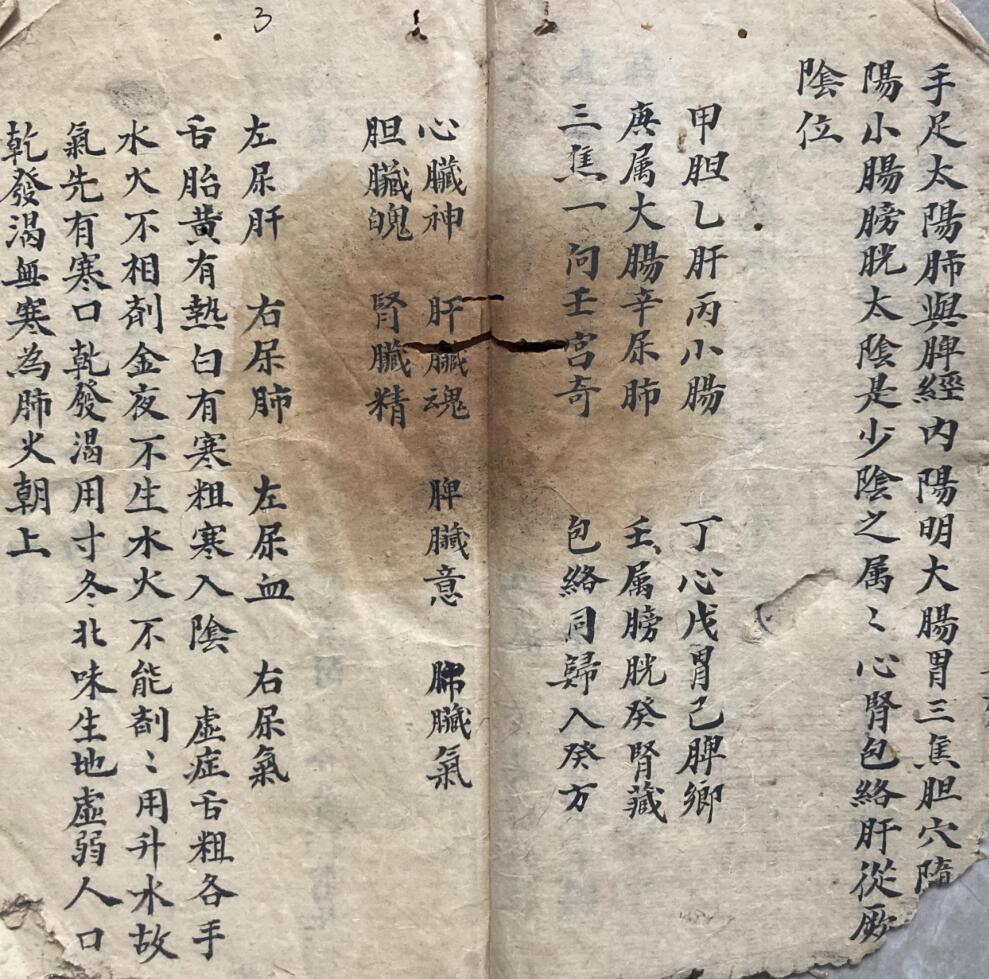 手足太陽肺與脾經内陽明大腸胃三焦胆穴隨
陽小腸膀胱太陰是少陰之属〻心腎包絡肝從厥
陰位
甲胆乙肝丙小腸 丁心戊胃己脾鄉
庚属大腸辛屎肺 壬属膀胱癸腎藏
三焦一向壬宫奇 包絡同歸入癸方
心臟神 肝臟魂 脾臟意 肺臟氣
胆臟魄 腎臟精
左屎肝 右屎肺 左屎血 右屎氣
舌胎黄有熱白有寒粗寒入陰 虛症舌粗各手
水火不相剤金夜不生水火不能剤〻用升水故
氣先有寒口乾發渴用寸冬北味生地虛弱人口
乾發渴無寒為肺火朝上
3